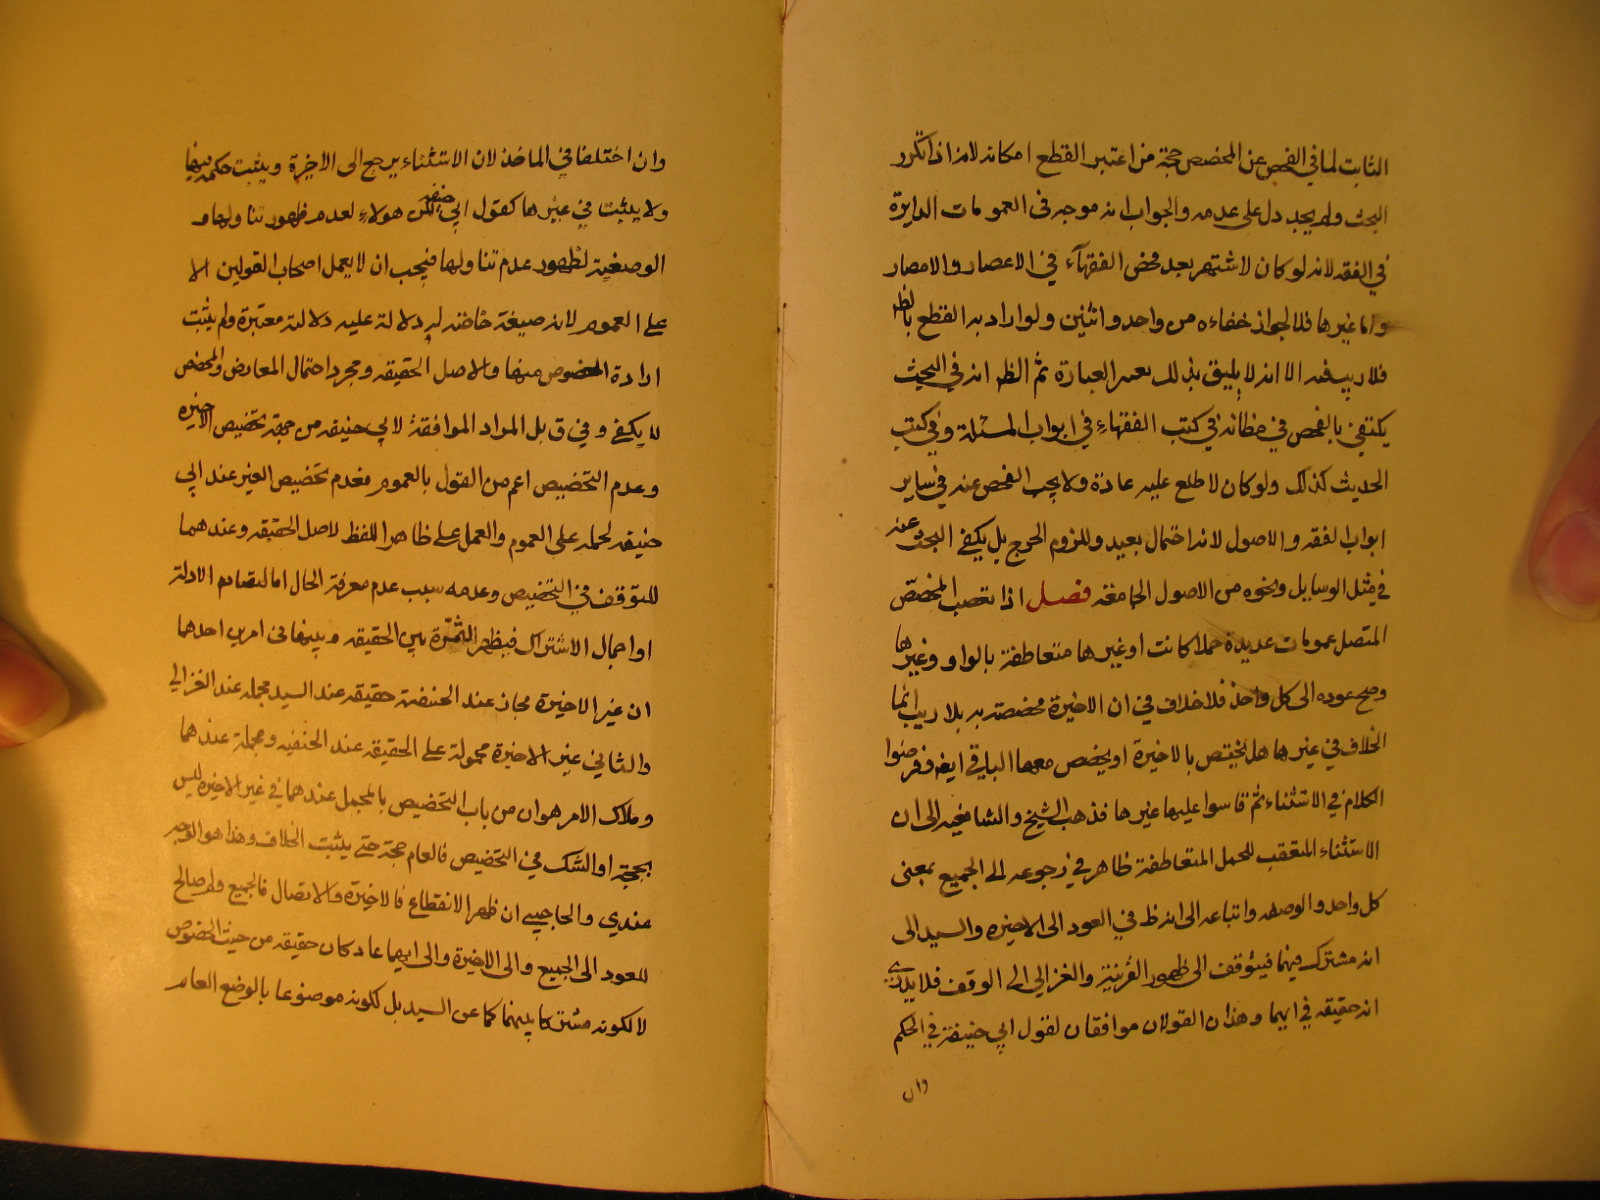 الثابت لما في الفحص عن المخصص حجة من اعتبر القطع امكانه لانه اذا تكرر
البحث ولم يجد دل على عدمه والجواب انه موجه فى العمومات الدايرة
في الفقه لانه لو كان لاشتهر بعد فحض الفقهآء في الاعصار والامصار
واما غيرها فلا لجواز خفاءه من واحد واثنين ولو اراد به القطع بالظ
فلا ريب فيه الا انه لا يليق بذلك العبارة ثم الظ انه في البحث
يكتفي بالفحص في مظانه في كتب الفقهاء في ابواب المسئلة وفي كتب
الحديث كذلك ولو كان لاطلع عليه عادة ولا يجب الفحص عنه في ساير
ابواب الفقه والاصول لانه احتمال بعيد وللزوم الحرج بل يكفي البحث عنه
في مثل الوسايل ونحوه من الاصول الجامعة فصل اذا تعصب المخصّص
المتصل عمومات عديدة جملا كانت او غيرها متعاطفة بالواو وغيرها
وصح عوده الى كل واحد فلا خلاف في ان الاخيرة مخصصة به بلا ريب انما
الخلاف في غيرها هل يختص بالاخيرة او يخصص معها الباقي ايضا وفرضوا
الكلام في الاستثناء ثم قاسوا عليها غيرها فذهب الشيخ والشافعية الى ان
الاستثناء المتعقب للجمل المتعاطفة ظاهر في رجوعه الى الجميع بمعنى
كل واحد وابو حنيفه واتباعه الى انه ظ في العود الى الاخيره والسيد الى
انه مشترك فيهما فيتوقف الى ظهور القرينة والغزالي الى الوقف فلا يدرى
انه حقيقه في ايهما وهذان القولان موافقان لقول ابي حنيفة في الحكم
وان
وان اختلفا في الماخذ لان الاستثناء يرجع الى الاخيرة ويثبت حكمه فيها
ولا يثبت في غيرها كقول ابي حنيفه لكن هولاء لعدم ظهور تناولها و
الحنفية لظهور عدم تناولها فيجب ان لا يعمل اصحاب القولين الا
على العموم لانه صيغة خاصة له دلالة عليه دلالة معتبرة ولم يثبت
ارادة الخصوص منها والاصل الحقيقه ومجرد احتمال المعارض والمخصص
لا يكفي وفي ق بل المراد الموافقة لابي حنيفه من جهة تخصيص الاخيره
وعدم التخصيص اعم من القول بالعموم فعدم تخصيص الغير عند ابي
حنيفه لحمله على العموم والعمل على ظاهر اللفظ لاصل الحقيقه وعندهما
للتوقف في التخصيص وعدمه سبب عدم معرفة الحال اما لتصادم الادلة
او اجمال الاشتراك فيظهر الثمرة بين الحقيقه وبينهما في امرين احدهما
ان غير الاخيرة مجاز عند الحنفية حقيقه عند السيد مجمله عند الغزالي
والثاني غير الاخيرة محمولة على الحقيقه عند الحنفيه ومجملة عندهما
وملاك الامر هو ان من باب التخصيص بالمجمل عندهما في غير الاخيره ليس
بحجة او الشك في التخصيص فالعام حجة حتى يثبت الخلاف وهذا هو الوجه
عندي والحاجبي ان ظهر الانقطاع فالاخيرة والاتصال فالجميع ولم صالح
للعود الى الجميع والى الاخيرة والى ايهما عاد كان حقيقه من حيث الخصوص
لا لكونه مشتركا بينهما كما عن السيد بل لكونه موضوعا بالوضع العام